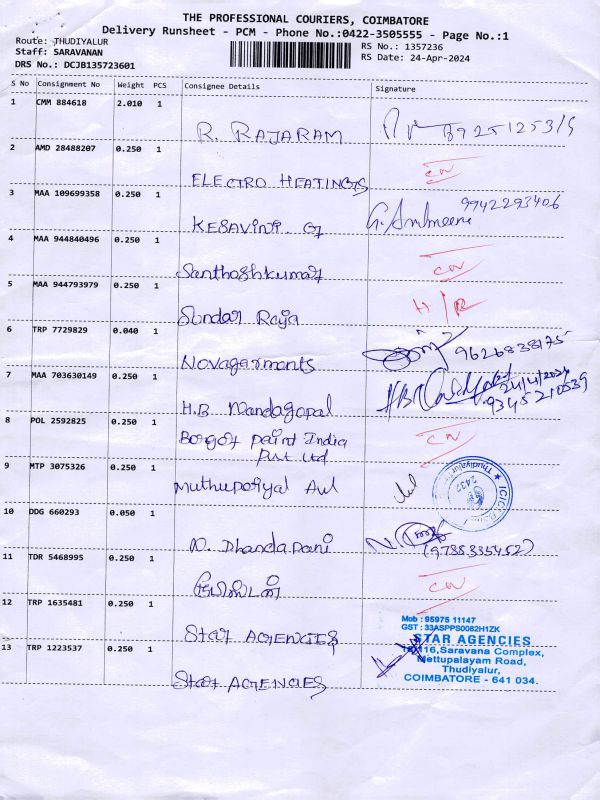 THE PROFESSIONAL COURIERS, COIMBATORE
Delivery Runsheet - PCM - Phone No.:0422-3505555 - Page No.:1
Route: THUDIYALUR
RS No.: 1357236
Staff: SARAVANAN
RS Date: 24-Apr-2024
DRS No.: DCJB135723601
S No Consignment No Weight PCS Consignee Details Signature
1 CMM 884618 2.010 1
R. RAJARAM
2 AMD 28488207 0.250 1
ELECTRO HEATINGS
3 MAA 109699358 0.250 1
KESAVINI G 9942293406
4 MAA 944840496 0.250 1
Santhoshkumar
5 MAA 944793979 0.250 1
Sundar Raja H/R
6 TRP 7729829 0.040 1
Novagarments 9626838175
7 MAA 703630149 0.250 1
H.B Nandagopal 24/4/2024
9345210539
8 POL 2592825 0.250 1
Borgor paint India
Pvt Ltd
9 MTP 3075326 0.250 1
Muthuperiyal Aul
Thudiyalur
ICICI Bank
2432
10 DDG 660293 0.050 1
N. Dhandapani
11 TDR 5468995 0.250 1
12 TRP 1635481 0.250 1
Star AGENCIES
13 TRP 1223537 0.250 1
Star AGENCIES
Mob : 95975 11147
GST : 33ASPPS0082H1ZK
STAR AGENCIES
116,Saravana Complex,
Mettupalayam Road,
Thudiyalur,
COIMBATORE - 641 034.